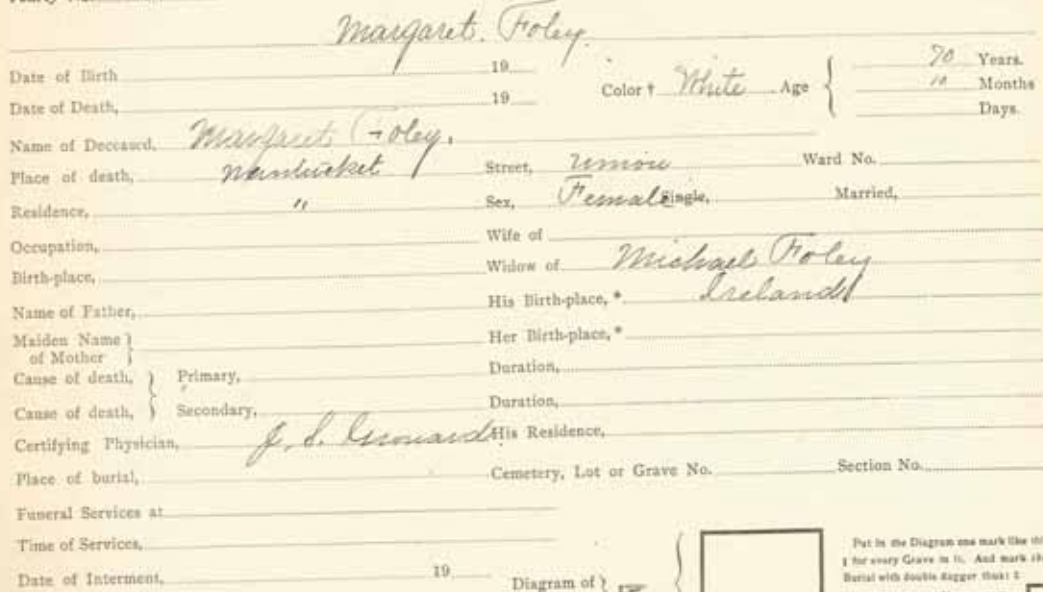 Margaret. Foley.
Date of Birth 19 Color † White Age { 70 Years.
10 Months
Date of Death, 19 Days.
Name of Deceased, Margaret Foley,
Place of death, Nantucket Street, Union Ward No.
Residence, " Sex, Female Single, Married,
Occupation, Wife of
Birth-place, Widow of Michael Foley
Name of Father, His Birth-place, * Ireland
Maiden Name } Her Birth-place, *
of Mother }
Cause of death, } Primary, Duration,
Cause of death, } Secondary, Duration,
Certifying Physician, J. S. His Residence,
Place of burial, Cemetery, Lot or Grave No. Section No.
Funeral Services at
Time of Services,
Date of Interment, 19 Diagram of }
Put in the Diagram one mark like
for every Grave in it. And mark
Burial with double dagger thus: ‡